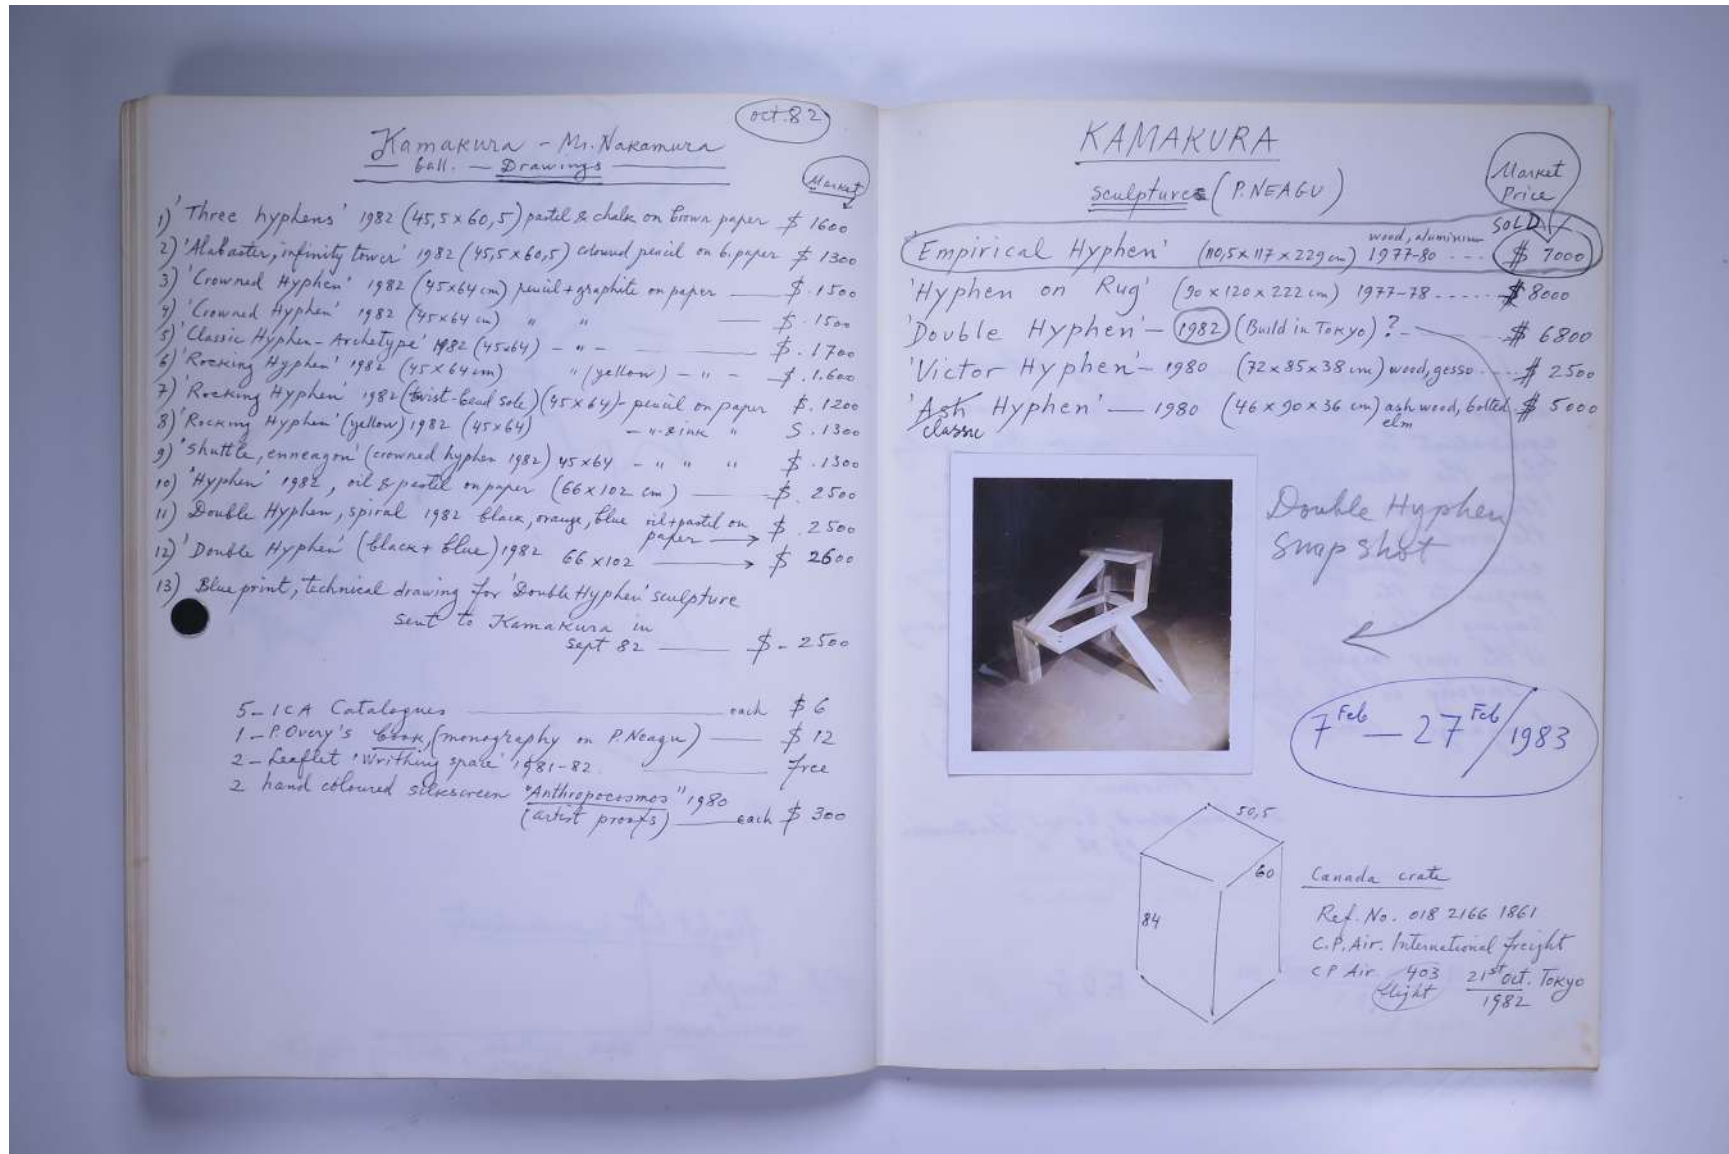 oct. 82
Kamakura - Mr. Nakamura
Gall. — Drawings
Market
1) 'Three hyphens' 1982 (45,5 x 60,5) pastel & chalk on brown paper $ 1600
2) 'Alabaster, infinity tower' 1982 (45,5 x 60,5) coloured pencil on b. paper $ 1300
3) 'Crowned Hyphen' 1982 (45x64 cm) pencil + graphite on paper — $ . 1500
4) 'Crowned Hyphen' 1982 (45x64 cm) " " — $ . 1500
5) 'Classic Hyphen - Archetype' 1982 (45x64) - " - — $ . 1700
6) 'Rocking Hyphen' 1982 (45x64 cm) " (yellow) - " - $ . 1.600
7) 'Rocking Hyphen' 1982 (twist-bead sole) (45x64) - pencil on paper $ . 1200
8) 'Rocking Hyphen' (yellow) 1982 (45x64) - " & ink " $ . 1300
9) 'Shuttle, enneagon' (crowned hyphen 1982) 45x64 - " " " $ . 1300
10) 'Hyphen' 1982, oil & pastel on paper (66x102 cm) — $ . 2500
11) Double Hyphen, spiral 1982 black, orange, blue oil+pastel on paper → $ . 2500
12) 'Double Hyphen' (black + blue) 1982 66x102 → $ 2600
13) Blue print, technical drawing for 'Double Hyphen' sculpture
sent to Kamakura in
sept 82 — $ - 2500
5 - ICA Catalogues — each $ 6
1 - P. Overy's book, (monography on P. Neagu) — $ 12
2 - Leaflet 'Writhing space' 1981-82 — free
2 hand coloured silkscreen "Anthropocosmos" 1980
(artist proofs) — each $ 300
KAMAKURA
Sculptures (P. NEAGU)
Market
Price
SOLD
'Empirical Hyphen' (110,5 x 117 x 229 cm) wood, aluminium 1977-80 ... $ 7000
'Hyphen on Rug' (90 x 120 x 222 cm) 1977-78 ...... $ 8000
'Double Hyphen' — 1982 (Build in Tokyo) ? — $ 6800
'Victor Hyphen' — 1980 (72 x 85 x 38 cm) wood, gesso .... $ 2500
'Ash Hyphen' — 1980 (46 x 90 x 36 cm) ash wood, bolted $ 5000
classic elm
Double Hyphen
snap shot
7 Feb — 27 Feb / 1983
50,5
60
84
Canada crate
Ref. No. 018 2166 1861
C.P. Air. International freight
CP Air 403 21st oct. Tokyo
flight 1982